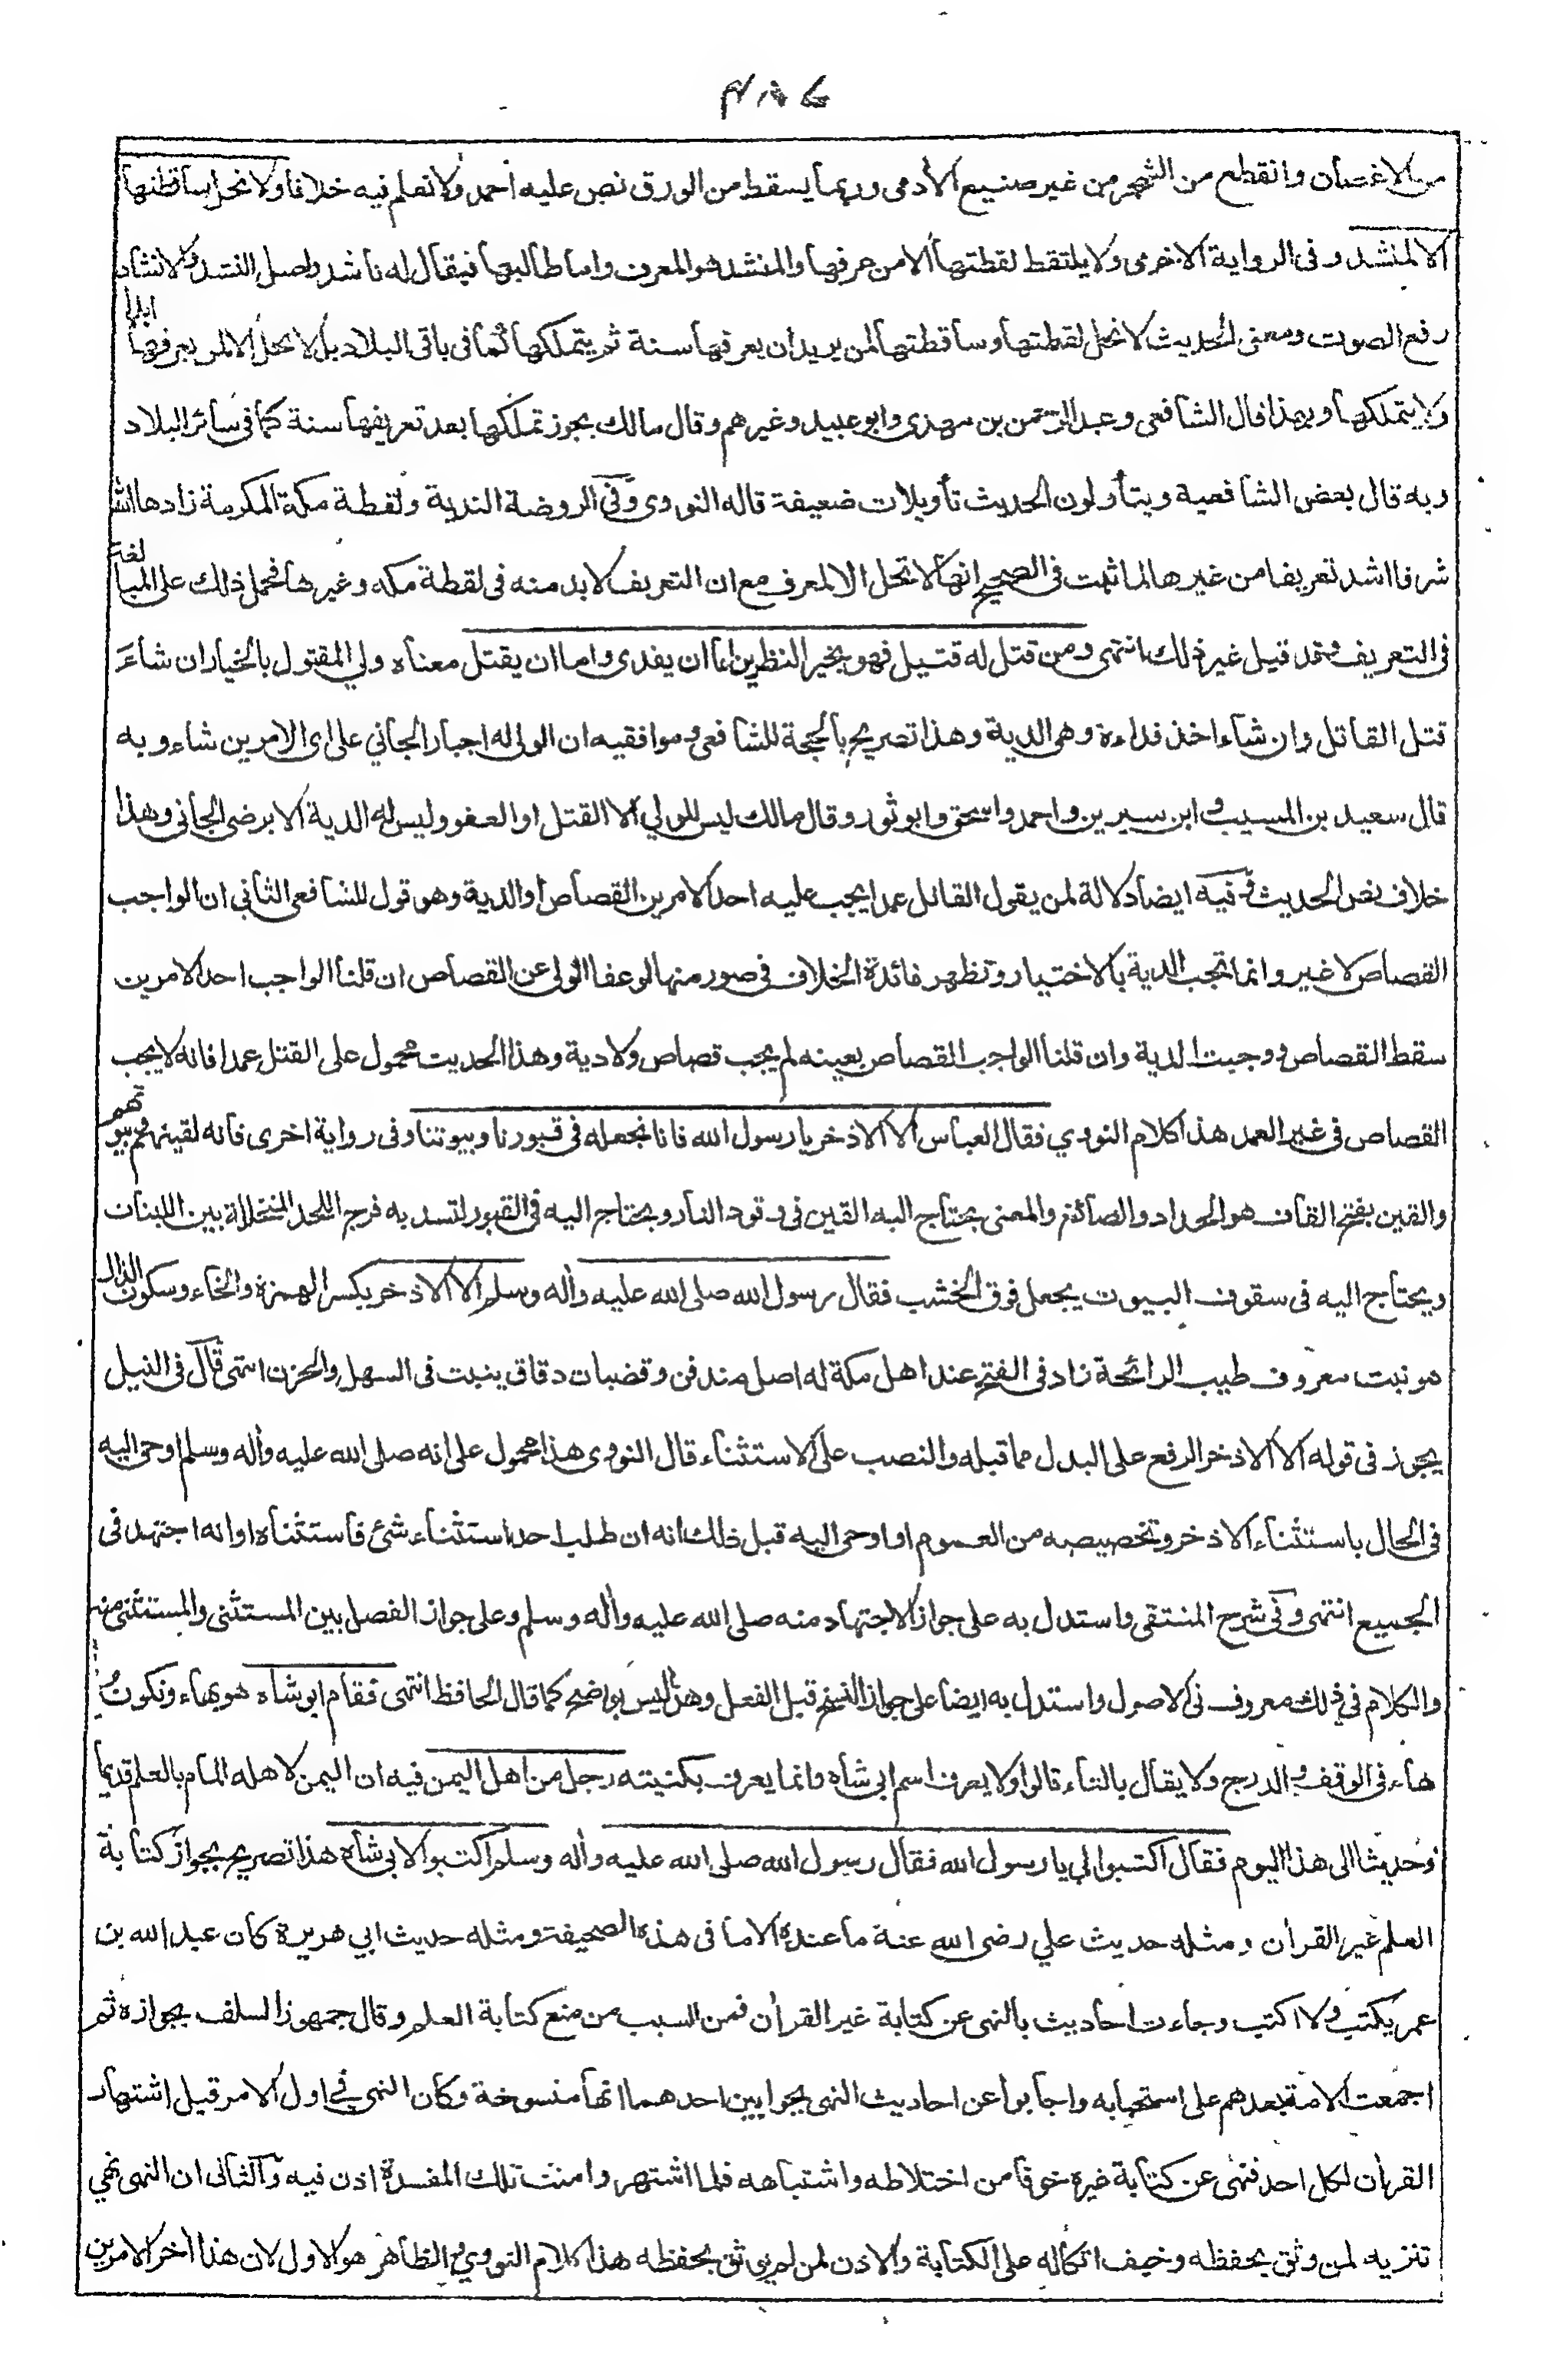 من الاغصان وانقطع من الشجر من غير صنيع الأدمى وربما يسقط من الورق نص عليه أحمد ولا نعلم فيه خلافا ولا تحل ساقطتها
الا لمنشد وفى الرواية الاخرى ولا يلتقط لقطتها الا من عرفها والمنشد هو المعرف واما طالبها فيقال له ناشد واصل النشد والانشاد
رفع الصوت ومعنى الحديث لا تحل لقطتها وساقطتها لمن يريد ان يعرفها سنة ثم يتملكها كما فى باقى البلاد بل لا تحل الا لمن يعرفها ابدا
ولا يتملكها وبهذا قال الشافعى وعبد الرحمن بن مهدى وابو عبيد وغيرهم وقال مالك يجوز تملكها بعد تعريفها سنة كما فى سائر البلاد
وبه قال بعض الشافعية ويتأولون الحديث تأويلات ضعيفة قاله النووى وفى الروضة الندية ولقطة مكة المكرمة زادها الله
شرفا اشد تعريفا من غيرها لما ثبت فى الصحيح انها لا تحل الا لمعرف مع ان التعريف لا بد منه فى لقطة مكه وغيرها فحمل ذلك على المبالغة
فى التعريف وقد قيل غير ذلك انتهى ومن قتل له قتيل فهو بخير النظرين اما ان يفدى واما ان يقتل معناه ولي المقتول بالخيار ان شاء
قتل القاتل وان شاء اخذ فداءه وهى الدية وهذا تصريح بالحجة للشافعى وموافقيه ان الولى له اجبار الجاني على اى الامرين شاء وبه
قال سعيد بن المسيب وابن سيرين واحمد واسحق وابو ثور وقال مالك ليس للولي الا القتل او العفو وليس له الدية الا برضى الجانى وهذا
خلاف نص الحديث وفيه ايضا دلالة لمن يقول القاتل عمدا يجب عليه احد الامرين القصاص او الدية وهو قول للشافعى الثانى ان الواجب
القصاص لا غير وانما تجب الدية بالاختيار وتظهر فائدة الخلاف فى صور منها لو عفا الولى عن القصاص ان قلنا الواجب احد الامرين
سقط القصاص ووجبت الدية وان قلنا الواجب القصاص بعينه لم يجب قصاص ولا دية وهذا الحديث محمول على القتل عمدا فانه لا يجب
القصاص فى غير العمد هذا كلام النووي فقال العباس الا الاذخر يا رسول الله فانا نجعله فى قبورنا وبيوتنا وفى رواية اخرى فانه لقينهم وبيوتهم
والقين بفتح القاف هو الحداد والصائغ والمعنى يحتاج اليه القين فى وقود النار ويحتاج اليه فى القبور لتسد به فرج اللحد المتخللة بين اللبنات
ويحتاج اليه فى سقوف البيوت يجعل فوق الخشب فقال رسول الله صلى الله عليه وأله وسلم الا الاذخر بكسر الهمزة والخاء وسكون الذال
هو نبت معروف طيب الرائحة زاد فى الفتح عند اهل مكة له اصل مندفن وقضبان دقاق ينبت فى السهل والحزن انتهى قال فى النيل
يجوز فى قوله الا الاذخر الرفع على البدل مما قبله والنصب على الاستثناء قال النووى هذا محمول على انه صلى الله عليه وأله وسلم اوحى اليه
فى الحال باستثناء الاذخر وتخصيصه من العموم او اوحى اليه قبل ذلك انه ان طلب احد استثناء شئ فاستثناه او انه اجتهد فى
الجميع انتهى وفى شرح المنتقى واستدل به على جواز الاجتهاد منه صلى الله عليه وأله وسلم وعلى جواز الفصل بين المستثنى والمستثنى منه
والكلام فى ذلك معروف فى الاصول واستدل به ايضا على جواز النسخ قبل الفعل وهذا ليس بواضح كما قال الحافظ انتهى فقام ابو شاه هو بهاء وتكون
هاء فى الوقف والدرج ولا يقال بالتاء قالوا ولا يعرف اسم ابى شاه وانما يعرف بكنيته رجل من اهل اليمن فيه ان اليمن لاهله المام بالعلم قديما
وحديثا الى هذا اليوم فقال اكتبوا لى يا رسول الله فقال رسول الله صلى الله عليه وأله وسلم اكتبوا لابى شاه هذا تصريح بجواز كتابة
العلم غير القرأن ومثله حديث علي رضى الله عنه ما عنده الا ما فى هذه الصحيفة ومثله حديث ابي هريرة كان عبد الله بن
عمر يكتب ولا اكتب وجاءت احاديث بالنهى عن كتابة غير القرأن فمن السبب من منع كتابة العلم وقال جمهور السلف بجوازه ثم
اجمعت الامة بعدهم على استحبابه واجابوا عن احاديث النهى بجوابين احدهما انها منسوخة وكان النهى فى اول الامر قبل اشتهار
القرأن لكل احد فنهى عن كتابة غيره خوفا من اختلاطه واشتباهه فلما اشتهر وامنت تلك المفسدة اذن فيه والثانى ان النهى نهي
تنزيه لمن وثق بحفظه وخيف اتكاله على الكتابة والاذن لمن لم يوثق بحفظه هذا كلام النووي والظاهر هو الاول لان هذا أخر الامرين